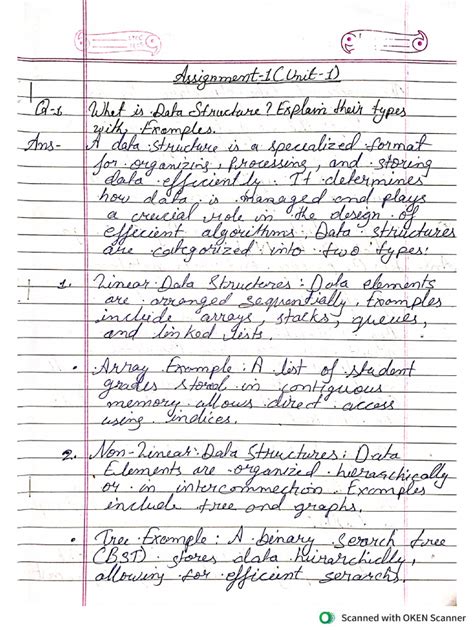 Assignment-1 (Unit-1)
Q-1 What is Data Structure? Explain their types
with Examples.
Ans- A data structure is a specialized format
for organizing, processing, and storing
data efficiently. It determines
how data is managed and plays
a crucial role in the design of
efficient algorithms. Data structures
are categorized into two types:
1. Linear Data Structures: Data elements
are arranged sequentially. Examples
include arrays, stacks, queues,
and linked lists.
• Array Example: A list of student
grades stored in contiguous
memory allows direct access
using indices.
2. Non-Linear Data Structures: Data
Elements are organized hierarchically
or in interconnection. Examples
include tree and graphs.
• Tree Example: A binary search tree
(BST) stores data hierarchically,
allowing for efficient serarchs.
Scanned with OKEN Scanner